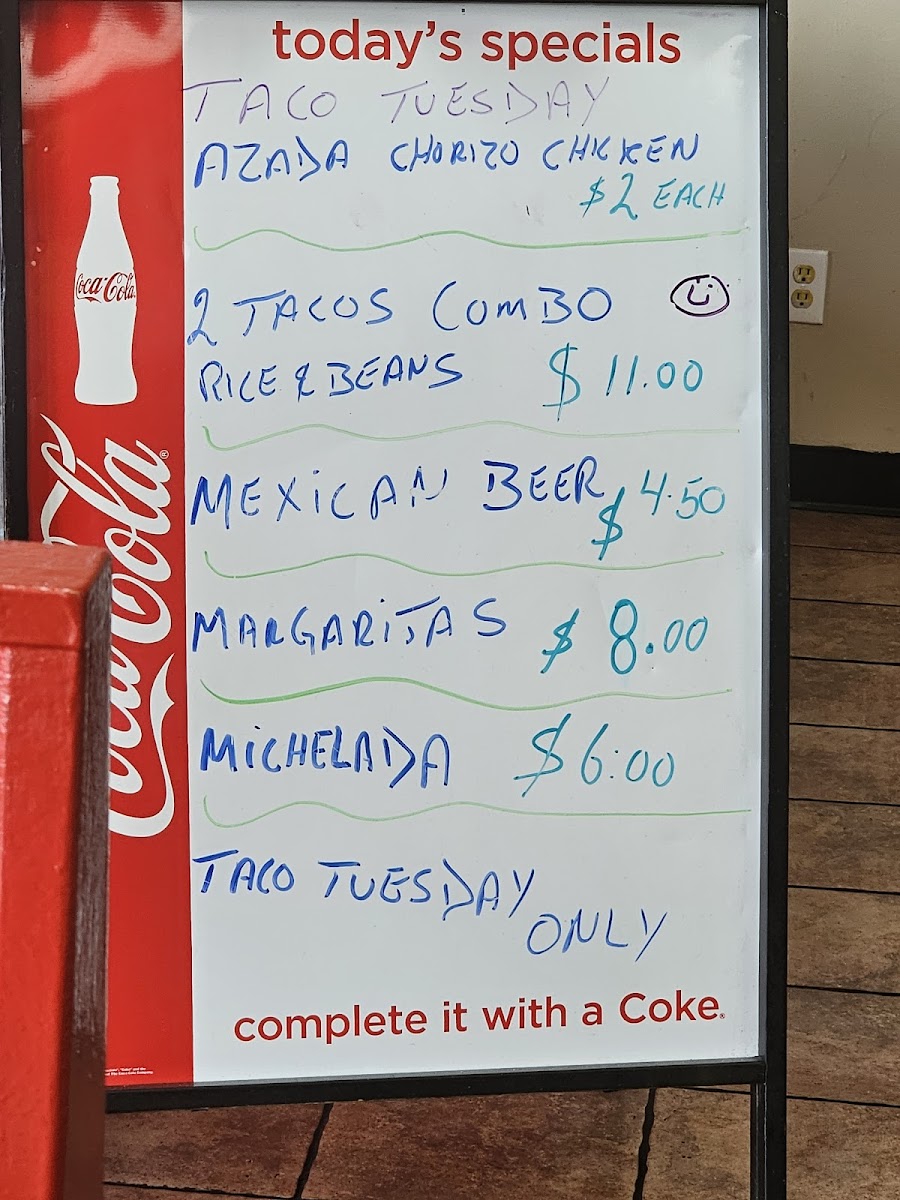 today's specials
TACO TUESDAY
AZADA CHORIZO CHICKEN
$2 EACH
2 TACOS COMBO
RICE & BEANS $11.00
MEXICAN BEER $4.50
MARGARITAS $8.00
MICHELADA $6:00
TACO TUESDAY
ONLY
complete it with a Coke®
Coca-Cola
Coca-Cola®